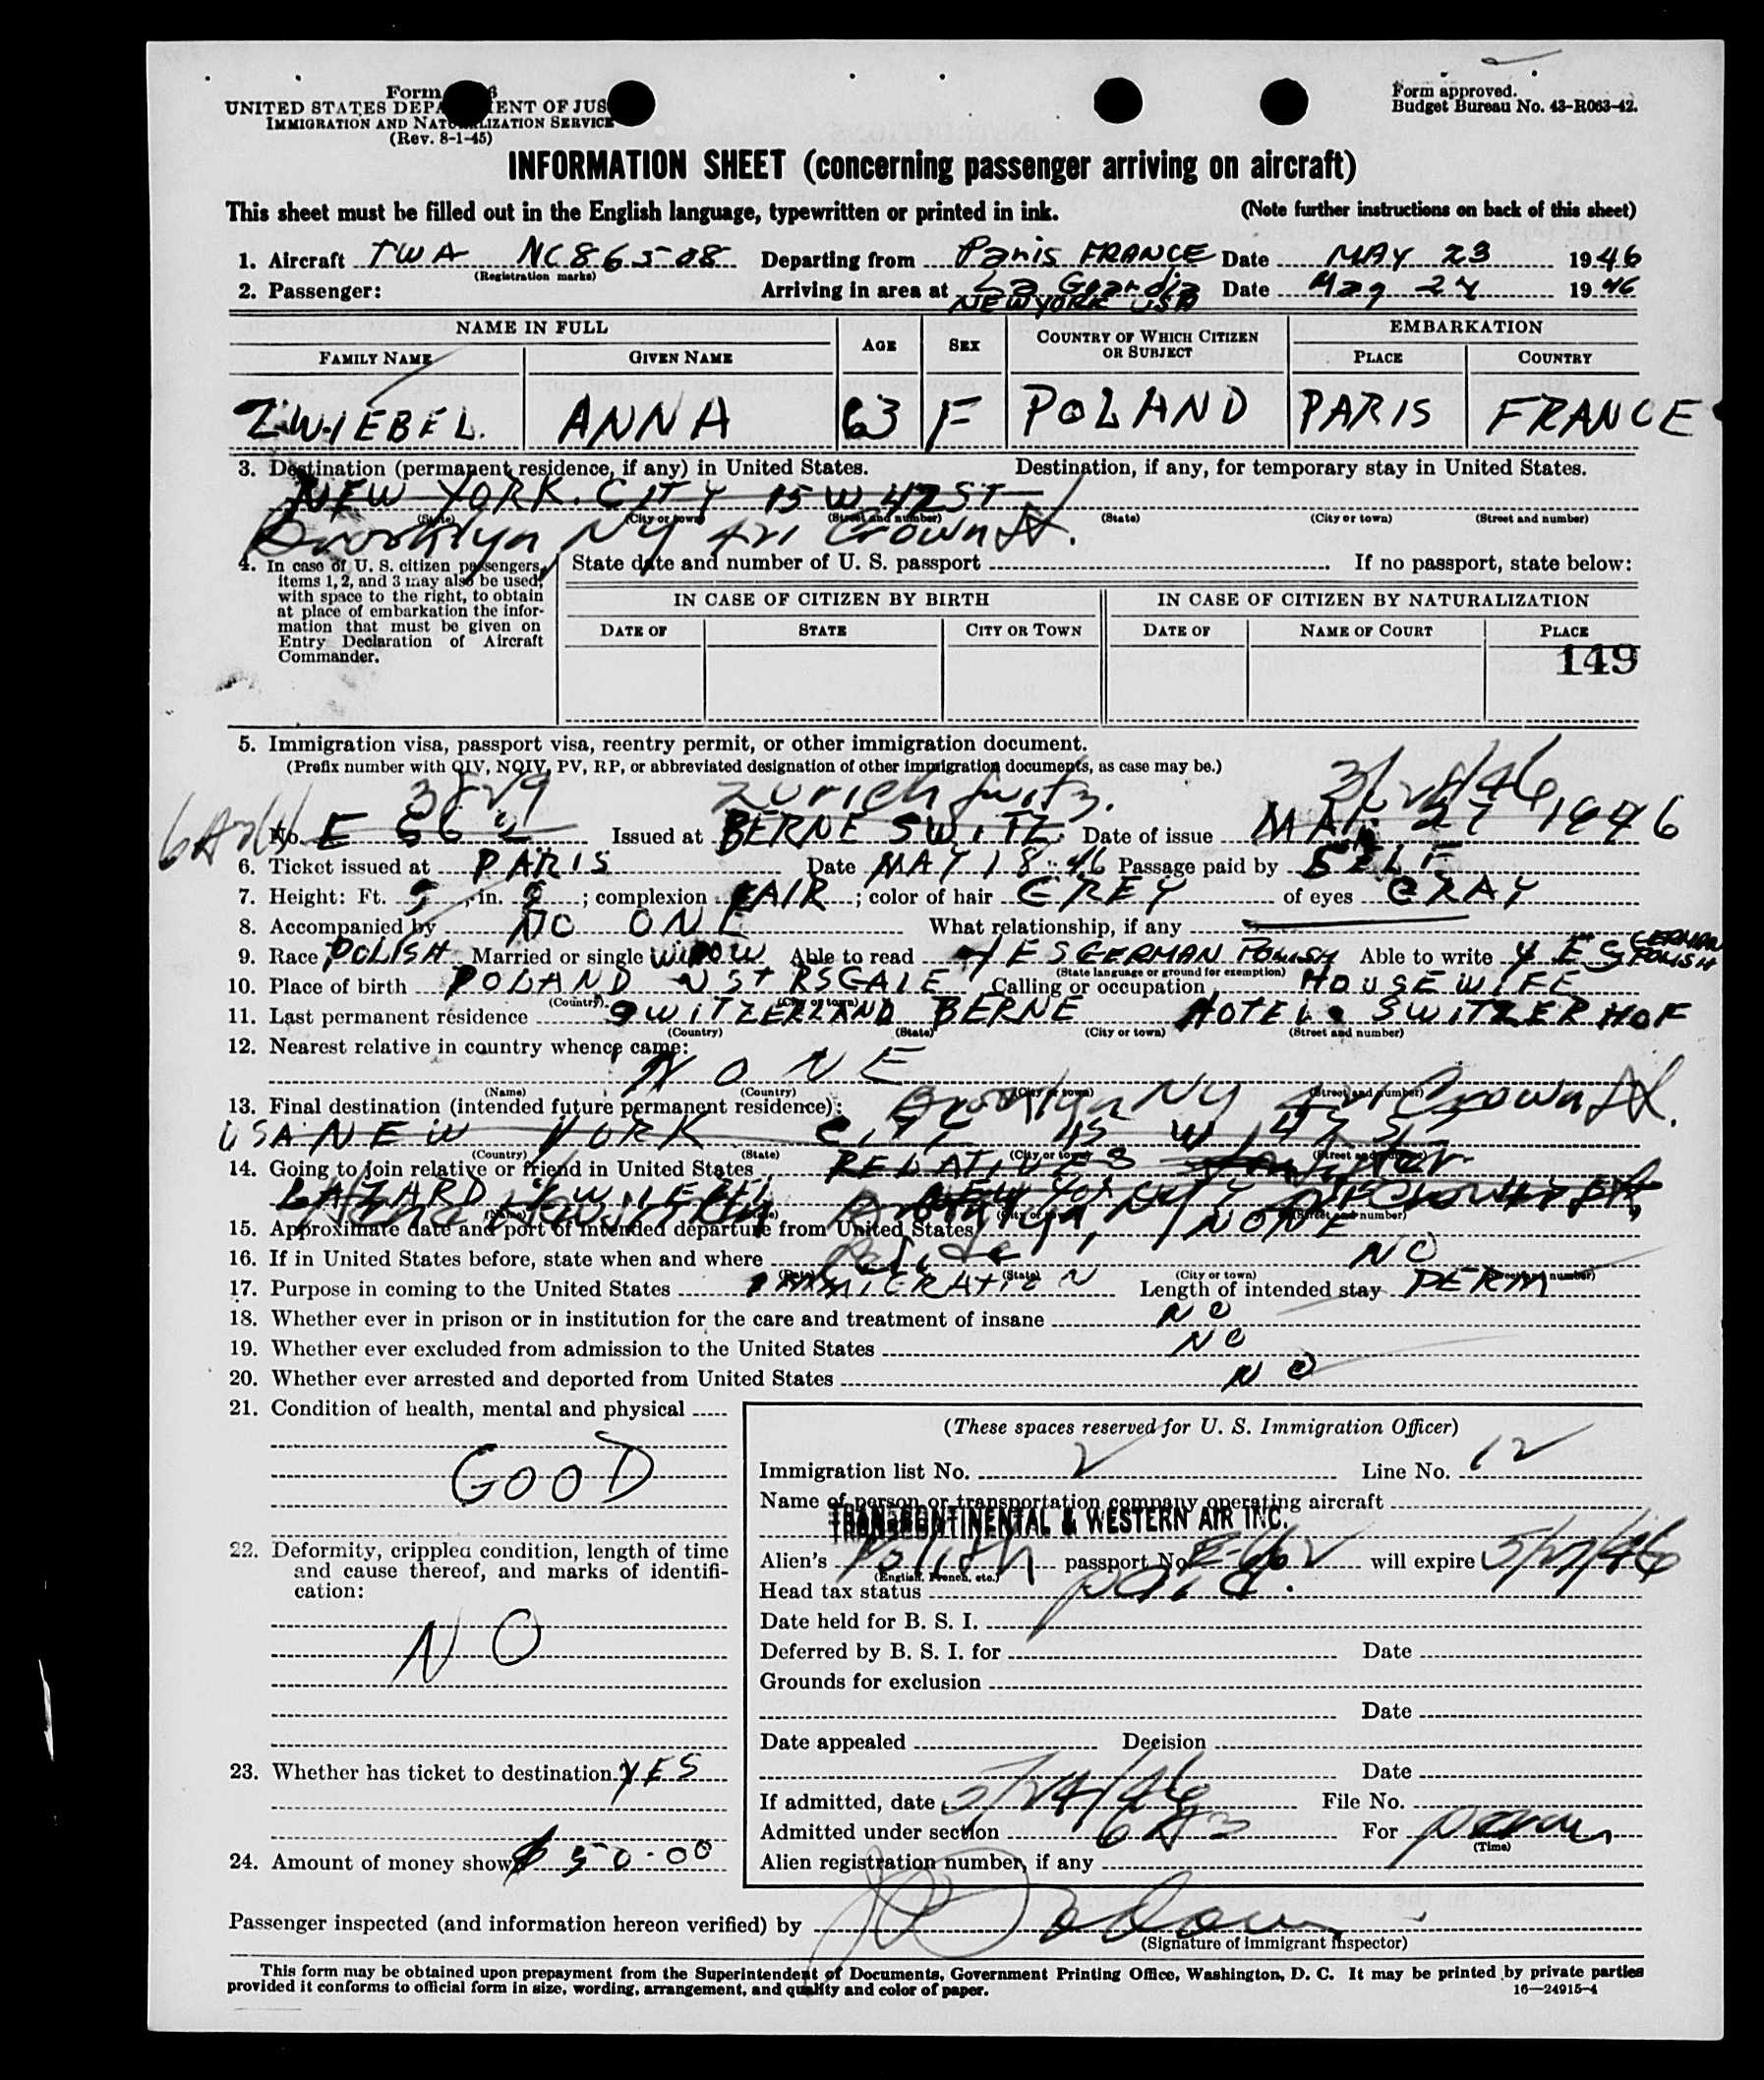 Form
UNITED STATES DEPA ENT OF JUS
IMMIGRATION AND NATURALIZATION SERVICE
(Rev. 8-1-45)
Form approved.
Budget Bureau No. 43-R063-42.
INFORMATION SHEET (concerning passenger arriving on aircraft)
This sheet must be filled out in the English language, typewritten or printed in ink. (Note further instructions on back of this sheet)
1. Aircraft TWA NC86508 Departing from Paris FRANCE Date MAY 23 1946
(Registration marks)
2. Passenger: Arriving in area at La Guardia Date May 24 1946
NEW YORK USA
NAME IN FULL AGE SEX COUNTRY OF WHICH CITIZEN OR SUBJECT EMBARKATION
FAMILY NAME GIVEN NAME PLACE COUNTRY
ZWIEBEL. ANNA 63 F POLAND PARIS FRANCE
3. Destination (permanent residence, if any) in United States. Destination, if any, for temporary stay in United States.
NEW YORK. CITY 15 W 47 ST
(State) (City or town) (Street and number) (State) (City or town) (Street and number)
Brooklyn NY 421 Crown St.
4. In case of U. S. citizen passengers, items 1, 2, and 3 may also be used, with space to the right, to obtain at place of embarkation the information that must be given on Entry Declaration of Aircraft Commander.
State date and number of U. S. passport If no passport, state below:
IN CASE OF CITIZEN BY BIRTH IN CASE OF CITIZEN BY NATURALIZATION
DATE OF STATE CITY OR TOWN DATE OF NAME OF COURT PLACE
149
5. Immigration visa, passport visa, reentry permit, or other immigration document.
(Prefix number with QIV, NQIV, PV, RP, or abbreviated designation of other immigration documents, as case may be.)
3829 Zurich Switz.
No. E Issued at BERNE SWITZ. Date of issue MAR. 27 1946
6. Ticket issued at PARIS Date MAY 18. 46 Passage paid by SELF
7. Height: Ft. 5, in. ; complexion FAIR ; color of hair GREY of eyes GRAY
8. Accompanied by NO ONE What relationship, if any
9. Race POLISH Married or single WIDOW Able to read YES GERMAN POLISH Able to write YES GERMAN POLISH
(State language or ground for exemption)
10. Place of birth POLAND Calling or occupation HOUSEWIFE
(Country) (City or town)
11. Last permanent residence SWITZERLAND BERNE HOTEL SWITZERHOF
(Country) (State) (City or town) (Street and number)
12. Nearest relative in country whence came:
NONE
(Name) (Country) (City or town) (Street and number)
13. Final destination (intended future permanent residence): Brooklyn NY 421 Crown St.
USA NEW YORK CITY 15 W 47 ST
(Country) (State) (City or town) (Street and number)
14. Going to join relative or friend in United States RELATIVES
LAZARD ZWIEBEL NEW YORK CITY
(Name) (State) (City or town) (Street and number)
15. Approximate date and port of intended departure from United States NONE
16. If in United States before, state when and where NO
(Date) (State) (City or town) (Street and number)
17. Purpose in coming to the United States IMMIGRATION Length of intended stay PERM
18. Whether ever in prison or in institution for the care and treatment of insane NO
19. Whether ever excluded from admission to the United States NO
20. Whether ever arrested and deported from United States NO
21. Condition of health, mental and physical
GOOD
22. Deformity, crippled condition, length of time and cause thereof, and marks of identification:
NO
23. Whether has ticket to destination YES
24. Amount of money shown $50.00
(These spaces reserved for U. S. Immigration Officer)
Immigration list No. 2 Line No. 12
Name of person or transportation company operating aircraft
TRANSCONTINENTAL & WESTERN AIR INC.
Alien's Polish passport No. will expire 5/27/46
(English, French, etc.)
Head tax status paid.
Date held for B. S. I.
Deferred by B. S. I. for Date
Grounds for exclusion
Date
Date appealed Decision
Date
If admitted, date 5/24/46 File No.
Admitted under section 6A3 For perm
(Time)
Alien registration number, if any
Passenger inspected (and information hereon verified) by
(Signature of immigrant inspector)
This form may be obtained upon prepayment from the Superintendent of Documents, Government Printing Office, Washington, D. C. It may be printed by private parties
provided it conforms to official form in size, wording, arrangement, and quality and color of paper. 16—24915-4